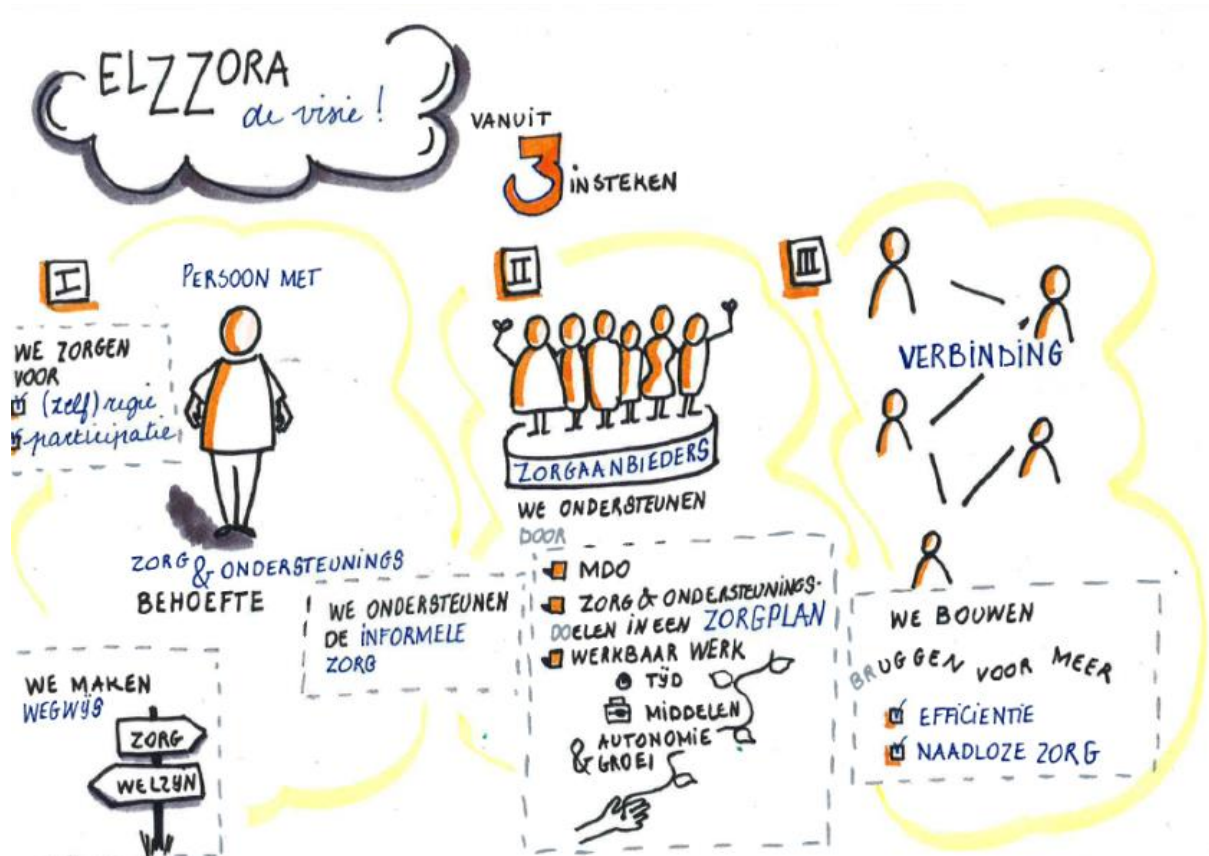 ELZZORA
de visie!
VANUIT
3 INSTEKEN
I
PERSOON MET
WE ZORGEN
VOOR
(zelf)regie
participatie
ZORG & ONDERSTEUNINGS
BEHOEFTE
WE ONDERSTEUNEN
DE INFORMELE
ZORG
WE MAKEN
WEGWIJS
ZORG
WELZIJN
II
ZORGAANBIEDERS
WE ONDERSTEUNEN
DOOR
MDO
ZORG & ONDERSTEUNINGS-
DOELEN IN EEN ZORGPLAN
WERKBAAR WERK
TIJD
MIDDELEN
& AUTONOMIE
GROEI
III
VERBINDING
WE BOUWEN
BRUGGEN VOOR MEER
EFFICIENTIE
NAADLOZE ZORG